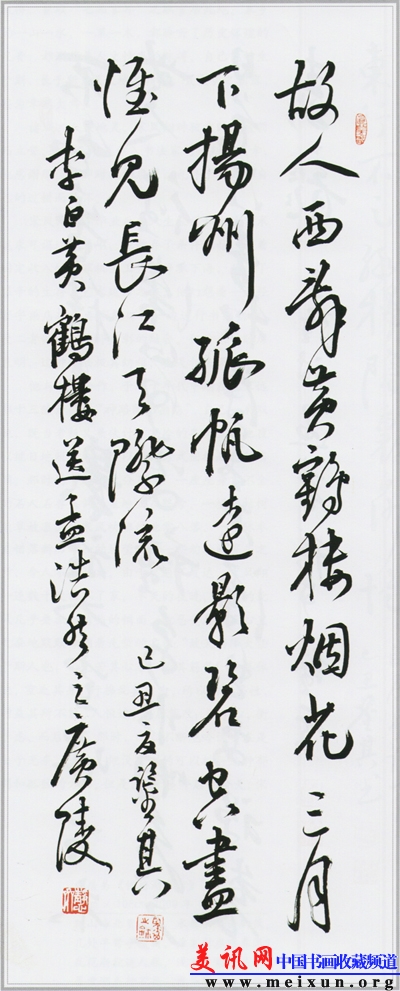 故人西辞黄鶴楼烟花三月
下揚州孤帆遠影碧空盡
惟見長江天際流
李白黄鶴樓送孟浩然之廣陵
己丑夏
美讯网
中国书画收藏频道
www.meixun.org